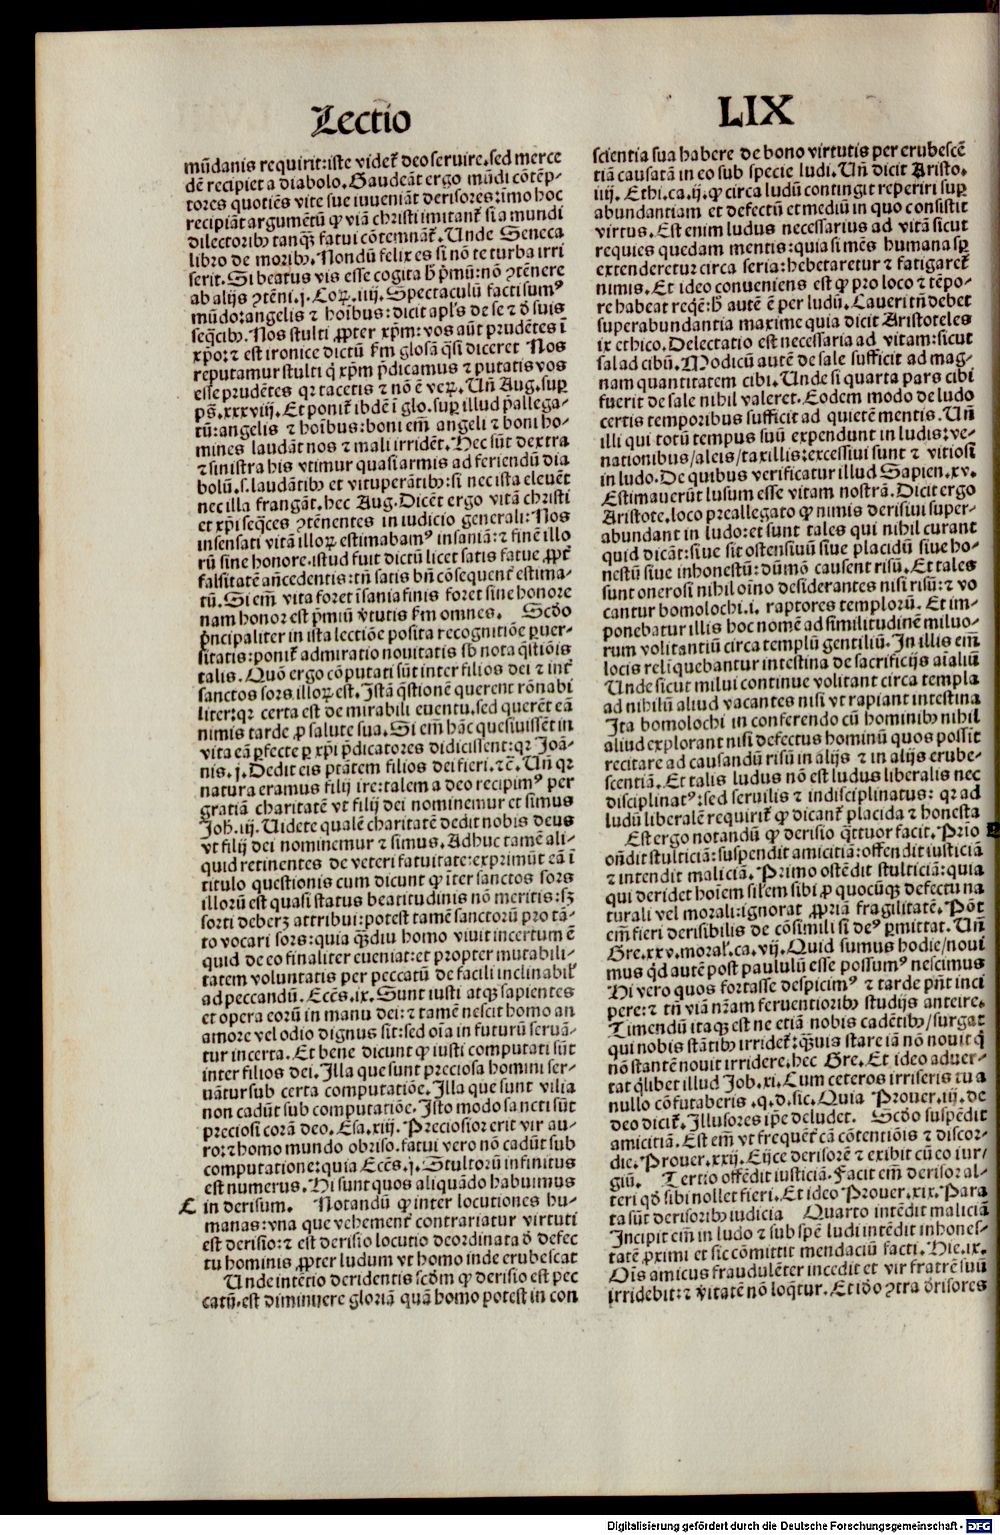 Lectio LIX
mũdanis requirit:iste videt᷑ deo seruire.sed merce
dẽ recipiet a diabolo. Gaudeãt ergo mũdi cõtẽp-
tores quotiẽs vite sue iuueniãt derisores:imo hoc
recipiãt argumẽtũ ꝙ viã christi imitant᷑ si a mundi
dilectoribꝫ tanqꝫ fatui cõtemnãt᷑. Unde Seneca
libro de moribꝫ. Nondũ felix es si nõ te turba irri
serit. Si beatus vis esse cogita h̃ p̃mũ:nõ ꝯtẽnere
ab alijs ꝯtẽni.j. Coꝝ.iiij. Spectaculũ facti sumꝰ
mũdo:angelis ⁊ hoĩbus:dicit apl̃s de se ⁊ ð suis
seq̃cibꝫ. Nos stulti ꝓpter xp̃m:vos aũt prudẽtes ĩ
xp̃o:⁊ est ironice dictũ ẜm glosã q̃si diceret Nos
reputamur stulti q̃ xp̃m p̃dicamus ⁊ putatis vos
esse prudẽtes qꝛ tacetis ⁊ nõ ẽ veꝝ. Uñ Aug.suꝑ
ps̃.xxxviij. Et ponit᷑ ibdẽ ĩ glo.suꝑ illud p̃allega-
tũ:angelis ⁊ hoĩbus:boni em̃ angeli ⁊ boni ho-
mines laudãt nos ⁊ mali irridẽt. Hec sũt dextra
⁊ sinistra his vtimur quasi armis ad feriendũ dia
bolũ.s.laudãtibꝫ et vituperãtibꝫ:si nec ista eleuẽt
nec illa frangãt.hec Aug. Dicẽt ergo vitã christi
et xp̃i seq̃ces ꝯtẽnentes in iudicio generali: Nos
insensati vitã illoꝝ estimabamꝰ insaniã:⁊ finẽ illo
rũ sine honore.istud fuit dictũ licet satis fatue ꝓpt᷑
falsitatẽ añcedentis:tñ satis bñ cõsequent᷑ estima-
tũ. Si em̃ vita foret ĩsania finis foret sine honore
nam honor est p̃miũ v̓tutis ẜm omnes. Scðo
p̃ncipaliter in ista lectiõe posita recognitiõe ꝑuer-
sitatis:ponit᷑ admiratio nouitatis sb̃ nota q̃stiõis
talis. Quõ ergo cõputati sũt inter filios dei ⁊ int᷑
sanctos sors illoꝝ est. Istã q̃stionẽ querent rõnabi
liter:qꝛ certa est de mirabili euentu.sed querẽt eã
nimis tarde ꝓ salute sua. Si em̃ hãc quesiuissẽt in
vita eã ꝑfecte ꝑ xp̃i p̃dicatores didicissent:qꝛ Joã-
nis.j. Dedit eis ptãtem filios dei fieri.⁊c̃. Uñ qꝛ
natura eramus filij ire:talem a deo recipimꝰ per
gratiã charitatẽ vt filij dei nominemur et simus
Joh̃.iij. Uidete qualẽ charitatẽ dedit nobis deus
vt filij dei nominemur ⁊ simus. Adhuc tamẽ ali-
quid retinentes de veteri fatuitate:exprimũt eã ĩ
titulo questionis cum dicunt ꝙ ĩter sanctos sors
illorũ est quasi status beatitudinis nõ meritis:sꝫ
sorti deberꝫ attribui:potest tamẽ sanctorũ pro tã-
to vocari sors:quia q̃ꝫdiu homo viuit incertum ẽ
quid de eo finaliter eueniat:et propter mutabili-
tatem voluntatis per peccatũ de facili inclinabil̓
ad peccandũ. Ecc̃s.ix. Sunt iusti atqꝫ sapientes
et opera eorũ in manu dei:⁊ tamẽ nescit homo an
amore vel odio dignus sit:sed oĩa in futurũ seruã-
tur incerta. Et bene dicunt ꝙ iusti computati sũt
inter filios dei. Illa que sunt preciosa homini ser-
uãtur sub certa computatiõe. Illa que sunt vilia
non cadũt sub computatiõe. Isto modo sancti sũt
preciosi corã deo. Esa.xiij. Preciosior erit vir au-
ro:⁊ homo mundo obriso.fatui vero nõ cadũt sub
computatione:quia Ecc̃s.j. Stultorũ infinitus
est numerus. Hi sunt quos aliquãdo habuimus
C in derisum. Notandũ ꝙ inter locutiones hu-
manas:vna que vehement᷑ contrariatur virtuti
est derisio:⁊ est derisio locutio deordinata ð defec
tu hominis ꝓpter ludum vt homo inde erubescat
Unde intẽtio deridentis scðm ꝙ derisio est pec
catũ.est diminuere gloriã quã homo potest in con
scientia sua habere de bono virtutis per erubescẽ
tiã causatã in eo sub specie ludi. Uñ dicit Aristo.
iiij. Ethi.ca.ij.ꝙ circa ludũ contingit reperiri suꝑ
abundantiam et defectũ et mediũ in quo consistit
virtus. Est enim ludus necessarius ad vitã sicut
requies quedam mentis:quia si mẽs humana sꝑ
extenderetur circa seria:hebetaretur ⁊ fatigaret᷑
nimis. Et ideo conueniens est ꝙ pro loco ⁊ tẽpo-
re habeat reqẽ:h̃ autẽ ẽ per ludũ. Caueri tñ debet
superabundantia maxime quia dicit Aristoteles
ix ethico. Delectatio est necessaria ad vitam:sicut
sal ad cibũ. Modicũ autẽ de sale sufficit ad mag-
nam quantitatem cibi. Unde si quarta pars cibi
fuerit de sale nihil valeret. Eodem modo de ludo
certis temporibus sufficit ad quietẽ mentis. Uñ
illi qui totũ tempus suũ expendunt in ludis:ve-
nationibus/aleis/taxillis:excessiui sunt ⁊ vitiosi
in ludo. De quibus verificatur illud Sapien.xv.
Estimauerũt lusum esse vitam nostrã. Dicit ergo
Aristote.loco preallegato ꝙ nimis derisiui super-
abundant in ludo:et sunt tales qui nihil curant
quid dicãt:siue sit ostensiuũ siue placidũ siue ho-
nestũ siue inhonestũ:dũmõ causent risũ. Et tales
sunt onerosi nihil oĩno desiderantes nisi risũ:⁊ vo
cantur bomolochi.i. raptores templorũ. Et im-
ponebatur illis hoc nomẽ ad similitudinẽ miluo-
rum volitantiũ circa templũ gentiliũ. In illis em̃
locis relinquebantur intestina de sacrificijs aĩaliũ
Unde sicut milui continue volitant circa templa
ad nihilũ aliud vacantes nisi vt rapiant intestina
Ita bomolochi in conferendo cũ hominibꝫ nihil
aliud explorant nisi defectus hominũ quos possit
recitare ad causandũ risũ in alijs ⁊ in alijs erube-
scentiã. Et talis ludus nõ est ludus liberalis nec
disciplinatꝰ:sed seruilis ⁊ indisciplinatus: qꝛ ad
ludũ liberalẽ requirit᷑ ꝙ dicant᷑ placida ⁊ honesta
Est ergo notandũ ꝙ derisio q̃ttuor facit. Prio
oñdit stulticiã:suspendit amicitiã:offendit iusticiã
⁊ intendit maliciã. Primo ostẽdit stulticiã:quia
qui deridet hoĩem sil̓em sibi ꝓ quocũqꝫ defectu na
turali vel morali:ignorat ꝓpriã fragilitatẽ. Põt
em̃ fieri derisibilis de cõsimili si deꝰ ꝑmittat. Uñ
Gre.xxv.moral̓.ca.vij. Quid sumus hodie/noui
mus qd̃ autẽ post paululũ esse possumꝰ nescimus
Hi vero quos fortasse despicimꝰ ⁊ tarde pñt inci
pere:⁊ tñ viã nr̃am feruentioribꝫ studijs anteire.
Timendũ itaqꝫ est ne etiã nobis cadẽtibꝫ/surgat
qui nobis stãtibꝫ irridet᷑:q̃ꝫuis stare iã nõ nouit q̃
nõ stantẽ nouit irridere.hec Gre. Et ideo aduer-
tat q̃libet illud Job.xi. Cum ceteros irriseris tu a
nullo cõfutaberis.q.d.sic. Quia Prouer.iij.de
deo dicit᷑. Illusores ip̃e deludet. Scðo suspẽdit
amicitiã. Est em̃ vt frequẽt᷑ cã cõtentiõis ⁊ discor-
die. Prouer.xxij. Eijce derisorẽ ⁊ exibit cũ eo iur/
giũ. Tertio offẽdit iusticiã. Facit em̃ derisor al-
teri qð sibi nollet fieri. Et ideo Prouer.xix. Para
ta sũt derisoribꝫ iudicia Quarto intẽdit maliciã
Incipit em̃ in ludo ⁊ sub spẽ ludi intẽdit inhones-
tatẽ ꝓximi et sic cõmittit mendaciũ facti. Hie.ix.
Oĩs amicus fraudulẽter incedit et vir fratrẽ suũ
irridebit:⁊ v̓itatẽ nõ loq̃tur. Et iðo ꝯtra ðrisores
Digitalisierung gefördert durch die Deutsche Forschungsgemeinschaft - DFG